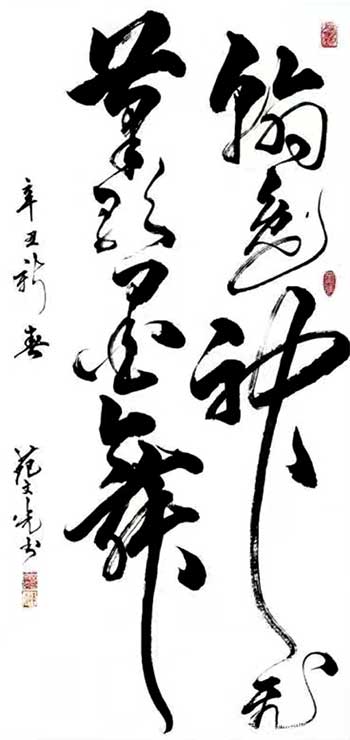 翰逸神飛
筆歌墨舞
辛丑新春
范文光书